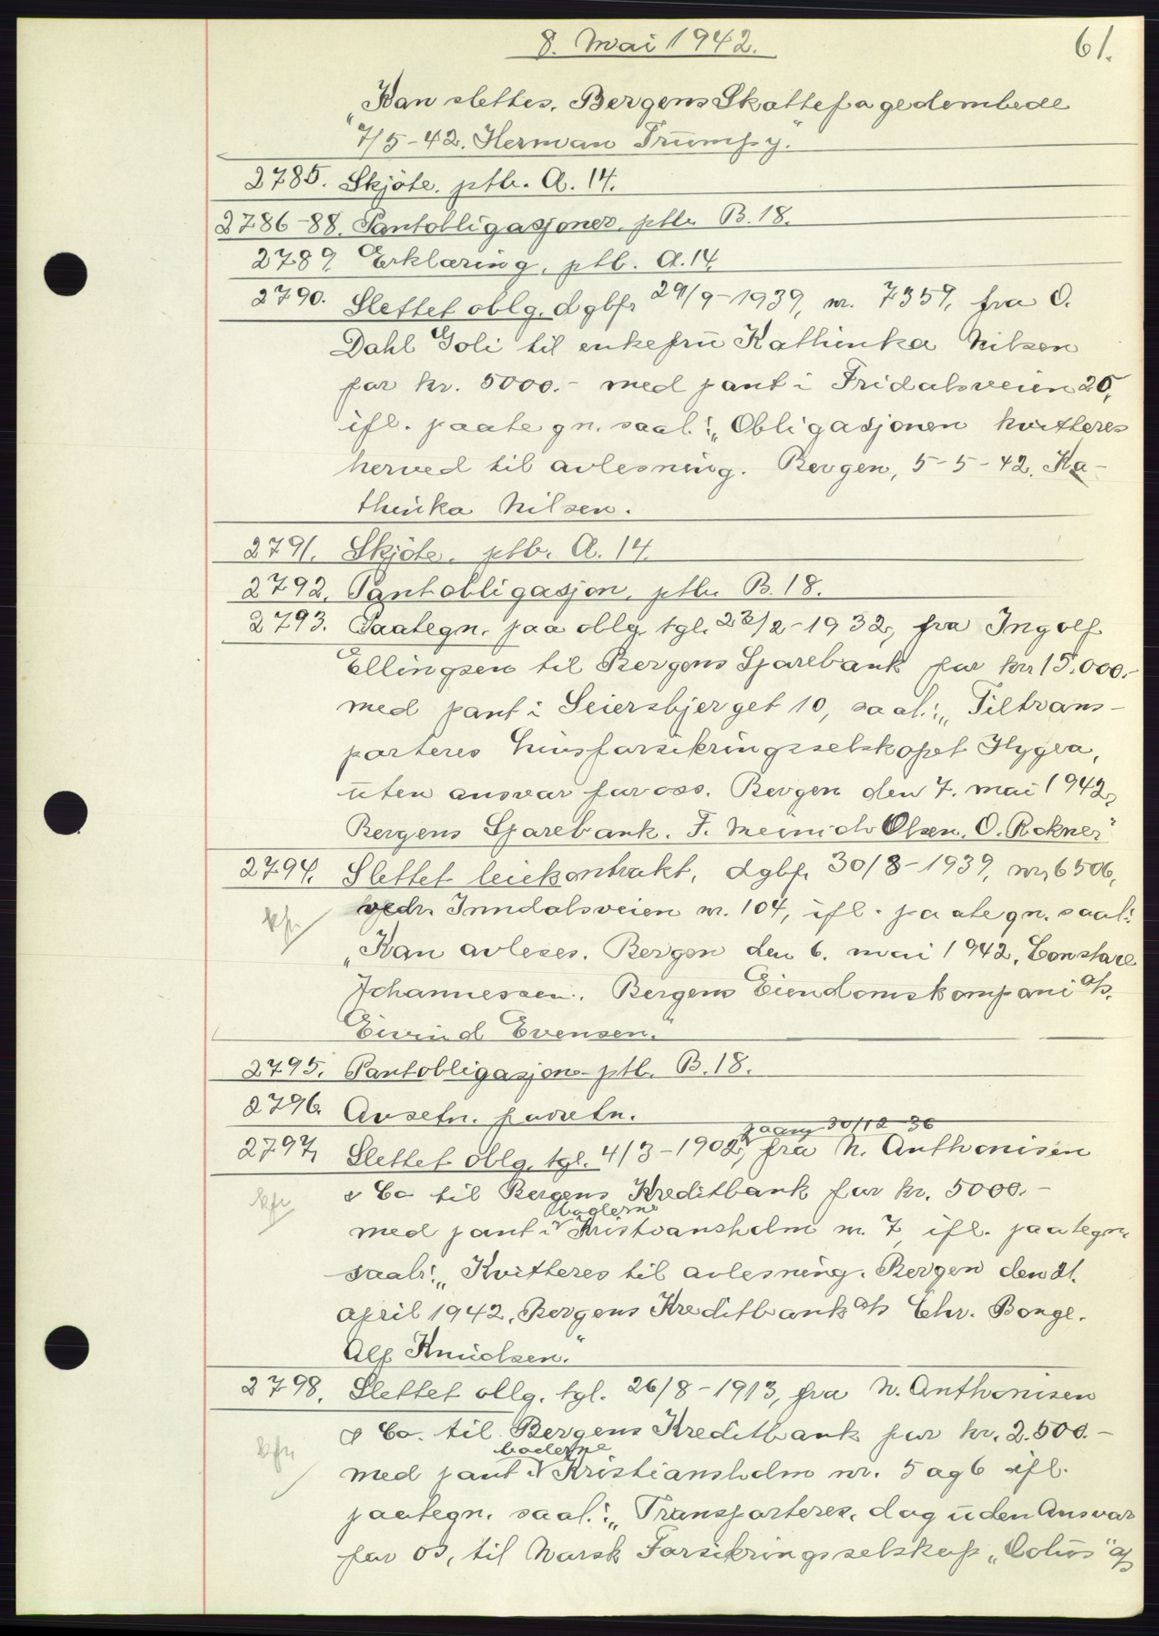 8. Mai 1942.
61.
„Kan slettes. Bergens Skattefogedembede
7/5-42. Herman Trümpy."
2785. Skjöte. ptb. A. 14.
2786-88. Pantobligasjoner. ptb. B. 18.
2789. Erklæring, ptb. A. 14.
2790. Slettet oblg. dgbf. 29/9-1939, nr. 7359, fra O.
Dahl Goli til enkefru Kathinka Nilsen
for kr. 5000.- med pant i Fridalsveien 25,
ifl. paategn. saal.: „Obligasjonen kvitteres
herved til avlesning. Bergen, 5-5-42. Ka-
thinka Nilsen.
2791. Skjöte. ptb. A. 14.
2792. Pantobligasjon, ptb. B. 18.
2793. Paategn. paa oblg. tgl. 23/2-1932, fra Ingolf
Ellingsen til Bergens Sparebank for kr. 15.000.-
med pant i Seiersbjerget 10, saal.: „Tiltrans-
porteres Livsforsikringsselskapet Hygea,
uten ansvar for oss. Bergen den 7. mai 1942,
Bergens Sparebank. F. Meinich Olsen. O. Rokne."
2794. Slettet leiekontrakt, dgbf. 30/8-1939, nr. 6506,
kfr.
vedr. Inndalsveien nr. 104, ifl. paategn. saal:
„Kan avleses. Bergen den 6. mai 1942.
Johannessen. Bergens Eiendomskompani a/s.
Eivind Evensen."
2795. Pantobligasjon ptb. B. 18.
2796. Avsetn. foretn.
2797. Slettet oblg. tgl. 4/3-1902, paany 30/12-36 fra N. Anthonisen
kfr
& Co til Bergens Kreditbank for kr. 5000.-
med pant i boderne Kristiansholm nr. 7 ifl. paategn.
saal: „Kvitteres til avlesning. Bergen den 21.
april 1942. Bergens Kreditbank a/s Chr. Bonge.
Alf Knudsen."
2798. Slettet oblg. tgl. 26/8-1913, fra N. Anthonisen
kfr
& Co. til Bergens Kreditbank for kr. 2.500.-
med pant i boderne Kristiansholm nr. 5 og 6 ifl.
paategn. saal.: „Transporteres, dog uden Ansvar
for os, til Norsk Forsikringsselskap a/s